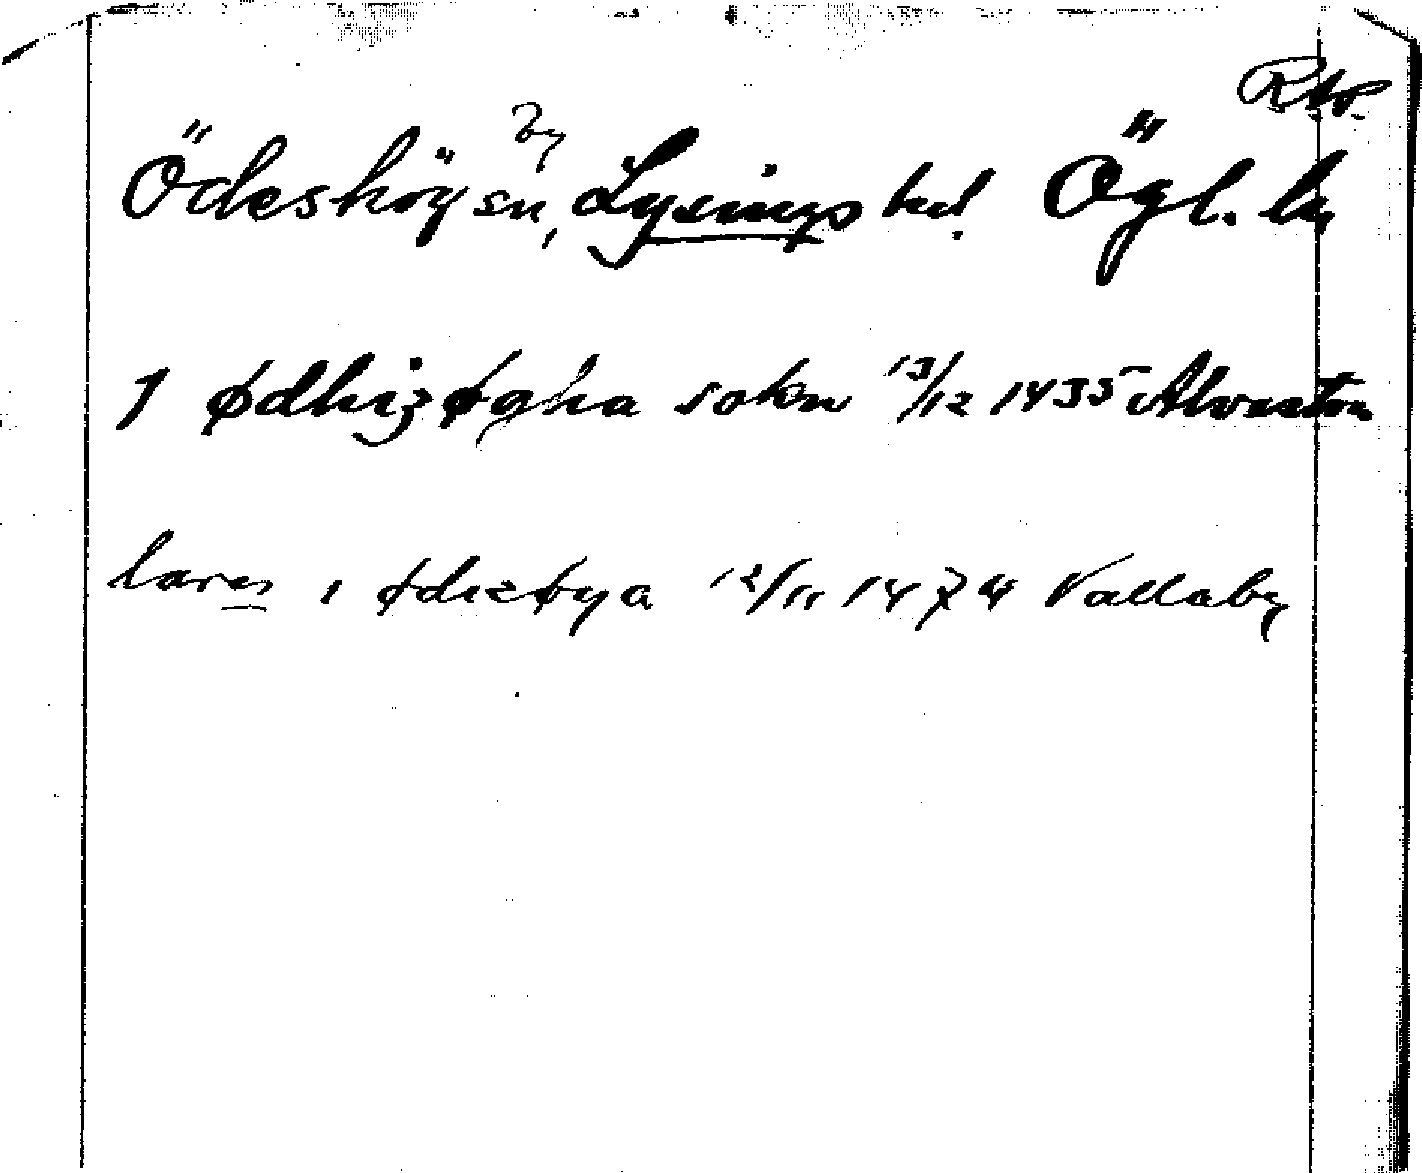 Ödeshög sn, Lysings hd. Ögl. by
J ødhizøgha sokn 13/12 1435 Alvastra
lares i ødizøya 12/11 1474 Vallaby